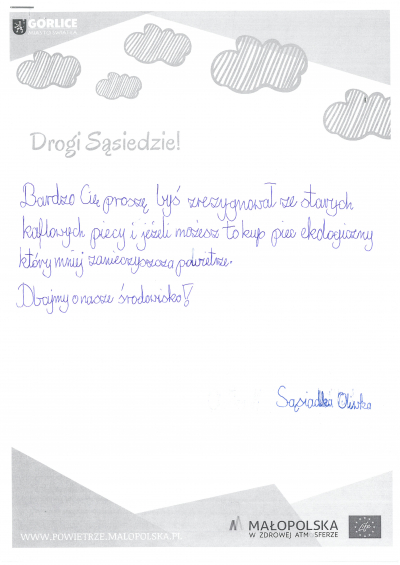 GORLICE
Drogi Sąsiedzie!
Bardzo Cię proszę byś zrezygnował ze starych
kaflowych piecy i jeżeli możesz to kup piec ekologiczny
który mniej zanieczyszcza powietrze.
Dbajmy o nasze środowisko!
Sąsiadka Oliwka
MAŁOPOLSKA
W ZDROWEJ ATMOSFERZE
WWW.POWIETRZE.MALOPOLSKA.PL